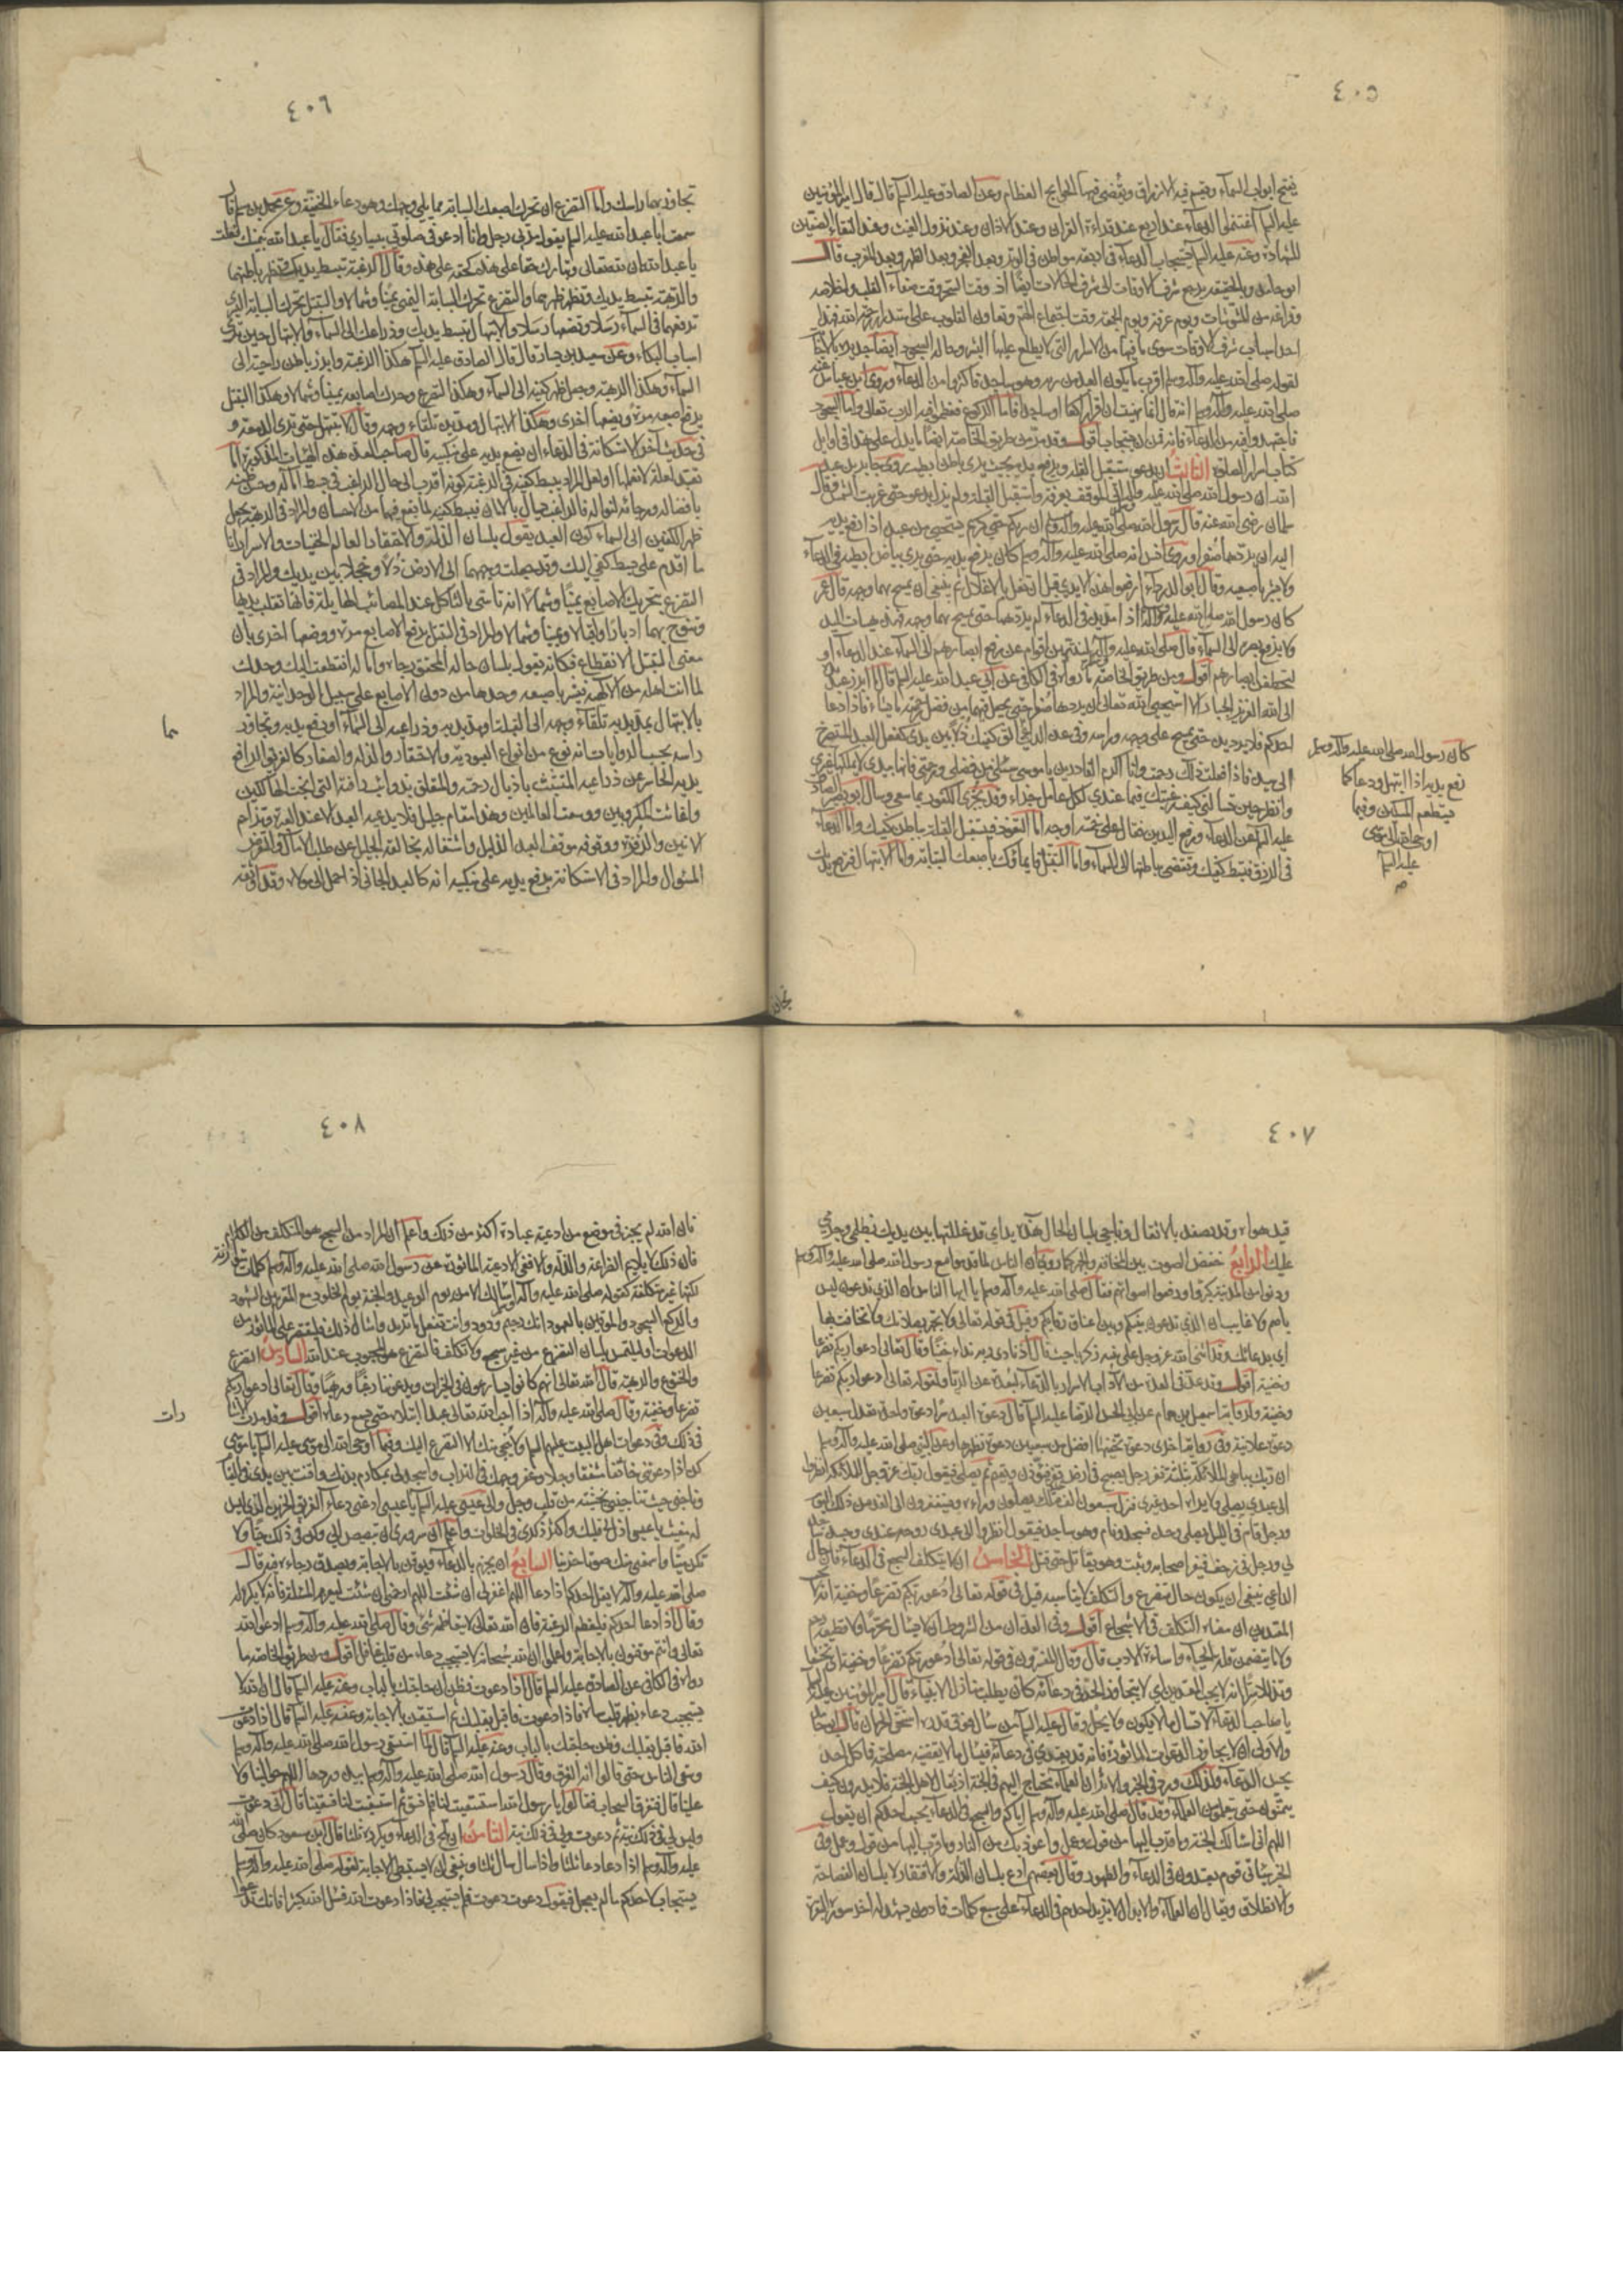 ٤٠٥
يفتح ابواب السماء ويقسم فيه الارزاق ويقضى فيها الحوايج العظام وعن الصادق عليه السلم قال قال امير المؤمنين
عليه السلم اغتنموا الدعاء عند اربع عند قراءة القران وعند الاذان وعند نزول الغيث وعند التقاء الصفين
للشهادة وعنه عليه السلم يستجاب الدعاء في اربعة مواطن في الوتر وبعد الفجر وبعد الظهر وبعد المغرب قال
ابو حامد وبالحقيقة يرجع شرف الاوقات الى شرف الحالات ايضا اذ وقت السحر وقت صفاء القلب واخلاصه
وفراغه من المشوشات ويوم عرفة ويوم الجمعة وقت اجتماع الهمم وتعاون القلوب على استدرار رحمة الله فهذا
احد اسباب شرف الاوقات سوى ما فيها من الاسرار التي لا يطلع عليها البشر وحالة السجود ايضا جديرة بالاجابة
لقوله صلى الله عليه وآله وسلم اقرب ما يكون العبد من ربه وهو ساجد فاكثروا من الدعاء وروى ابن عباس عنه
صلى الله عليه وآله وسلم انه قال انما نهيت ان اقرا راكعا او ساجدا فاما الركوع فعظموا فيه الرب تعالى واما السجود
فاجتهدوا فيه من الدعاء فانه قمن ان يستجاب اقول وقد مر من طريق الخاصة ايضا ما يدل على هذا في اوايل
كتاب اسرار الصلوة الثالث ان يدعو مستقبل القبلة ويرفع يديه بحيث يرى باطن ابطيه روى جابر بن عبد
الله ان رسول الله صلى الله عليه وآله اتى الموقف بعرفة واستقبل القبلة ولم يزل يدعو حتى غربت الشمس وقال
سلمان رضى الله عنه قال رسول الله صلى الله عليه وآله وسلم ان ربكم حيي كريم يستحيي من عبده اذا رفع يديه
اليه ان يردهما صفرا وروى انس انه صلى الله عليه وآله وسلم كان يرفع يديه حتى يرى بياض ابطيه في الدعاء
ولا يشير باصبعيه وقال ابو الدرداء ارفعوا هذه الايدي قبل ان تغل بالاغلال ثم ينبغي ان يمسح بهما وجهه قال عمر
كان رسول الله صلى الله عليه وآله اذا مد يديه في الدعاء لم يردهما حتى يمسح بهما وجهه فهذه هيات اليد
ولا يرفع بصره الى السماء قال صلى الله عليه وآله لينتهين اقوام عن رفع ابصارهم الى السماء عند الدعاء او
لتخطفن ابصارهم اقول ومن طريق الخاصة ما رواه في الكافي عن ابي عبد الله عليه السلم قال ما ابرز عبد يده
الى الله العزيز الجبار الا استحيى الله تعالى ان يردها صفرا حتى يجعل فيها من فضل رحمته ما يشاء فاذا دعا
احدكم فلا يرد يده حتى يمسح على وجهه وراسه وفي عدة الداعي
الى سيده فاذا فعلت ذلك رحمت وانا اكرم القادرين يا موسى سلني من فضلي ورحمتي فانها بيدي لا يملكها غيري
وانظر حين تسالني كيف رغبتك فيما عندي لكل عامل جزاء وقد يجزى الكفور بما سعى وسال ابو بصير الصادق
عليه السلم عن الدعاء ورفع اليدين فقال على خمسة اوجه اما التعوذ فتستقبل القبلة بباطن كفيك واما الدعاء
في الرزق فتبسط كفيك وتفضي بباطنهما الى السماء واما التبتل فايماؤك باصبعك السبابة واما الابتهال فترفع يديك
كان رسول الله صلى الله عليه وآله وسلم
يرفع يديه اذا ابتهل ودعا كما
يستطعم المسكين وفيما
اوحى الله الى موسى
عليه السلم
٤٠٦
تجاوز بهما راسك واما التضرع ان تحرك اصبعك السبابة مما يلي وجهك وهو دعاء الخيفة وعن محمد بن مسلم قال
سمعت ابا عبد الله عليه السلم يقول مر بي رجل وانا ادعو في صلوتي بيساري فقال يا عبد الله بيمينك فقلت
يا عبد الله ان لله تعالى وتبارك حقا على هذه كحقه على هذه وقال الرغبة تبسط يديك وتظهر باطنهما
والرهبة تبسط يديك وتظهر ظهرهما والتضرع تحرك السبابة اليمنى يمينا وشمالا والتبتل تحرك السبابة اليسرى
ترفعها في السماء رسلا وتضعها رسلا والابتهال تبسط يديك وذراعك الى السماء والابتهال حين ترى
اسباب البكاء وعن سعيد بن يسار قال قال الصادق عليه السلم هكذا الرغبة وابرز باطن راحتيه الى
السماء وهكذا الرهبة وجعل ظهر كفيه الى السماء وهكذا التضرع وحرك اصابعه يمينا وشمالا وهكذا التبتل
يرفع اصبعه مرة ويضعها اخرى وهكذا الابتهال ومد يديه تلقاء وجهه وقال لا تبتهل حتى ترى الدمعة و
في حديث آخر الاستكانة في الدعاء ان يضع يديه على منكبيه قال صاحب العدة هذه الهيئات المذكورة اما
تعبد لعلة لا نعلمها او لعل المراد ببسط كفيه في الرغبة كونه اقرب الى حال الراغب في بسط اماله وحسن ظنه
بافضاله ورجائه لنواله فالراغب يسال بالامان فيبسط كفيه لما يقع فيها من الاحسان والمراد في الرهبة بجعل
ظهر الكفين الى السماء كون العبد يقول بلسان الذلة والاحتقار لعالم الخفيات والاسرار انا
ما اقدم على بسط كفي اليك وقد جعلت وجههما الى الارض ذلا وخجلا بين يديك والمراد في
التضرع بتحريك الاصابع يمينا وشمالا انه تاسى بالثاكل عند المصائب الهايلة فانها تقلب يديها
وتنوح بهما ادبارا واقبالا ويمينا وشمالا والمراد في التبتل برفع الاصابع مرة ووضعها اخرى بان
معنى التبتل الانقطاع فكانه يقول بلسان حاله لمحقق رجاه واماله انقطعت اليك وحدك
لما انت اهله من الالهية فيشير باصبعه وحدها من دون الاصابع على سبيل الوحدانية والمراد
بالابتهال بمد يديه تلقاء وجهه الى القبلة او مد يديه وذراعيه الى السماء او رفع يديه وتجاوز
راسه بحسب الروايات انه نوع من انواع العبودية والاحتقار والذلة والصغار كالغريق الرافع
يديه الحاسر عن ذراعيه المتشبث باذيال رحمته والمتعلق بذوائب رافته التي انجت الهالكين
واغاثت المكروبين ووسعت العالمين وهذا مقام جليل فلا يدعيه العبد الا عند العبرة وتزاحم
الانين والزفرة ووقوفه موقف العبد الذليل واشتغاله بخالقه الجليل عن طلب الامال والتعرض
للسؤال والمراد في الاستكانة برفع يديه على منكبيه انه كالعبد الجاني اذا حمل الى مولاه وقد اوثقه
٤٠٧
قيد هواه وقد تصفد بالاثقال وناجى بلسان الحال هذه يداي قد غللتهما بين يديك بظلمي وجرأتي
عليك الرابع خفض الصوت بين المخافتة والجهر كما روى ان الناس لما قدموا مع رسول الله صلى الله عليه وآله وسلم
ودنوا من المدينة كبروا ورفعوا اصواتهم فقال صلى الله عليه وآله وسلم يا ايها الناس ان الذي تدعون ليس
باصم ولا غايب ان الذي تدعون بينكم وبين اعناق رقابكم وقيل في قوله تعالى ولا تجهر بصلاتك ولا تخافت بها
اي بدعائك وقد اثنى الله عز وجل على نبيه زكريا حيث قال اذ نادى ربه نداء خفيا وقال تعالى ادعوا ربكم تضرعا
وخفية اقول وقد عد في العدة من الآداب الاسرار بالدعاء لبعده عن الريا ولقوله تعالى ادعوا ربكم تضرعا
وخفية ولرواية اسمعيل بن همام عن ابي الحسن الرضا عليه السلم قال دعوة العبد سرا دعوة واحدة تعدل سبعين
دعوة علانية وفي رواية اخرى دعوة تخفيها افضل من سبعين دعوة تظهرها وعن النبي صلى الله عليه وآله وسلم
ان ربك يباهي الملائكة بثلثة نفر رجل يصبح في ارض قفر فيؤذن ويقيم ثم يصلي فيقول ربك عز وجل للملائكة انظروا
الى عبدي يصلي ولا يراه احد غيري فنزل سبعون الف ملك يصلون وراءه ويستغفرون الى الغد من ذلك اليوم
ورجل قام في الليل يصلي وحده فسجد ونام وهو ساجد فيقول انظروا الى عبدي روحه عندي وجسده ساجد
لي ورجل في زحف فيفر اصحابه ويثبت وهو يقاتل حتى قتل الخامس ان لا يتكلف السجع في الدعاء فان حال
الداعي ينبغي ان يكون حال متضرع والتكلف لا يناسبه قيل في قوله تعالى ادعوا ربكم تضرعا وخفية انه لا يحب
المعتدين ان معناه التكلف في الاسجاع اقول وفي العدة ان من الشروط ان لا يسال محرما ولا قطيعة رحم
ولا ما يتضمن قلة الحياء واساءة الادب قال وقال المفسرون في قوله تعالى ادعوا ربكم تضرعا وخفية اي تخشعا
وتذللا سرا انه لا يحب المعتدين اي لا يتجاوز الحد في دعائه كان يطلب منازل الانبياء قال امير المؤمنين عليه السلم
يا صاحب الدعاء لا تسال ما لا يكون ولا يحل وقال عليه السلم من سال فوق قدره استحق الحرمان قال ابو حامد
والاولى ان لا يجاوز الدعوات الماثورة فانه قد يعتدي في دعائه فيسال ما لا يقتضيه مصلحته فما كل احد
يحسن الدعاء ولذلك ورد في الخبر والاثر ان العلماء يحتاج اليهم في الجنة اذ يقال لاهل الجنة تمنوا فلا يدرون كيف
يتمنون حتى يتعلموا من العلماء وقد قال صلى الله عليه وآله وسلم اياكم والسجع في الدعاء بحسب احدكم ان يقول
اللهم اني اسالك الجنة وما قرب اليها من قول وعمل واعوذ بك من النار وما قرب اليها من قول وعمل وفي
الخبر سياتي قوم يعتدون في الدعاء والطهور وقال بعضهم ادع بلسان الذلة والافتقار لا بلسان الفصاحة
والانطلاق ويقال ان العلماء والابدال لا يزيد احدهم في الدعاء على سبع كلمات فما دون يشهد له اخر سورة البقرة
٤٠٨
فان الله لم يخبر في موضع من ادعية عباده اكثر من ذلك واعلم ان المراد من السجع هو المتكلف من الكلام
فان ذلك لا يلايم الضراعة والذلة والا ففي الادعية الماثورة عن رسول الله صلى الله عليه وآله وسلم كلمات متوازنة
لكنها غير متكلفة كقوله صلى الله عليه وآله وسلم اسالك الامن يوم الوعيد والجنة يوم الخلود مع المقربين الشهود
والركع السجود والموفين بالعهود انك رحيم ودود وانت تفعل ما تريد وامثال ذلك فليقتصر على الماثور من
الدعوات او ليلتمس بلسان التضرع من غير سجع ولا تكلف فالتضرع هو المحبوب عند الله السادس التضرع
والخشوع والرهبة قال الله تعالى انهم كانوا يسارعون في الخيرات ويدعوننا رغبا ورهبا وقال تعالى ادعوا ربكم
تضرعا وخفية وقال صلى الله عليه وآله اذا احب الله تعالى عبدا ابتلاه حتى يسمع دعاءه اقول
في ذلك وفي دعوات اهل البيت عليهم السلم ولا ينجي منك الا التضرع اليك وفيما اوحى الله الى موسى عليه السلم يا موسى
كن اذا دعوتني خائفا مشفقا وجلا وعفر وجهك في التراب واسجد لي بمكارم بدنك واقنت بين يدي في القيام
وناجني حيث تناجيني بخشية من قلب وجل والى عيسى عليه السلم يا عيسى ادعني دعاء الغريق الحزين الذي ليس
له مغيث يا عيسى اذل لي قلبك واكثر ذكري في الخلوات واعلم ان سروري ان تبصبص الي وكن في ذلك حيا ولا
تكن ميتا واسمعني منك صوتا حزينا السابع ان يجزم بالدعاء ويوقن بالاجابة ويصدق رجاءه فيه قال
صلى الله عليه وآله لا يقل احدكم اذا دعا اللهم اغفر لي ان شئت اللهم ارحمني ان شئت ليعزم المسئلة فانه لا مكره له
وقال اذا دعا احدكم فليعظم الرغبة فان الله تعالى لا يتعاظمه شئ وقال صلى الله عليه وآله وسلم ادعوا الله
تعالى وانتم موقنون بالاجابة واعلموا ان الله سبحانه لا يستجيب دعاء من قلب غافل اقول ومن طريق الخاصة ما
رواه في الكافي عن الصادق عليه السلم قال اذا دعوت فظن ان حاجتك بالباب وعنه عليه السلم قال ان الله لا
يستجيب دعاء بظهر قلب ساه فاذا دعوت فاقبل بقلبك ثم استيقن بالاجابة وعنه عليه السلم قال اذا دعوت
الله فاقبل بقلبك وظن حاجتك بالباب وعنه عليه السلم قال لما استسقى رسول الله صلى الله عليه وآله وسلم
وسقى الناس حتى قالوا انه الغرق وقال رسول الله صلى الله عليه وآله وسلم بيده وردها اللهم حوالينا ولا
علينا قال فتفرق السحاب فقالوا يا رسول الله استسقيت لنا فلم نسق ثم استسقيت لنا فسقينا قال اني دعوت
وليس لي في ذلك نية ثم دعوت ولي في ذلك نية الثامن ان يلح في الدعاء ويكرره ثلثا قال ابن مسعود كان صلى الله
عليه وآله وسلم اذا دعا دعا ثلثا واذا سال سال ثلثا وينبغي ان لا يستبطئ الاجابة لقوله صلى الله عليه وآله وسلم
يستجاب لاحدكم ما لم يعجل فيقول دعوت دعوت فلم يستجب لي فاذا دعوت الله فسئل الله كثيرا فانك تدعو